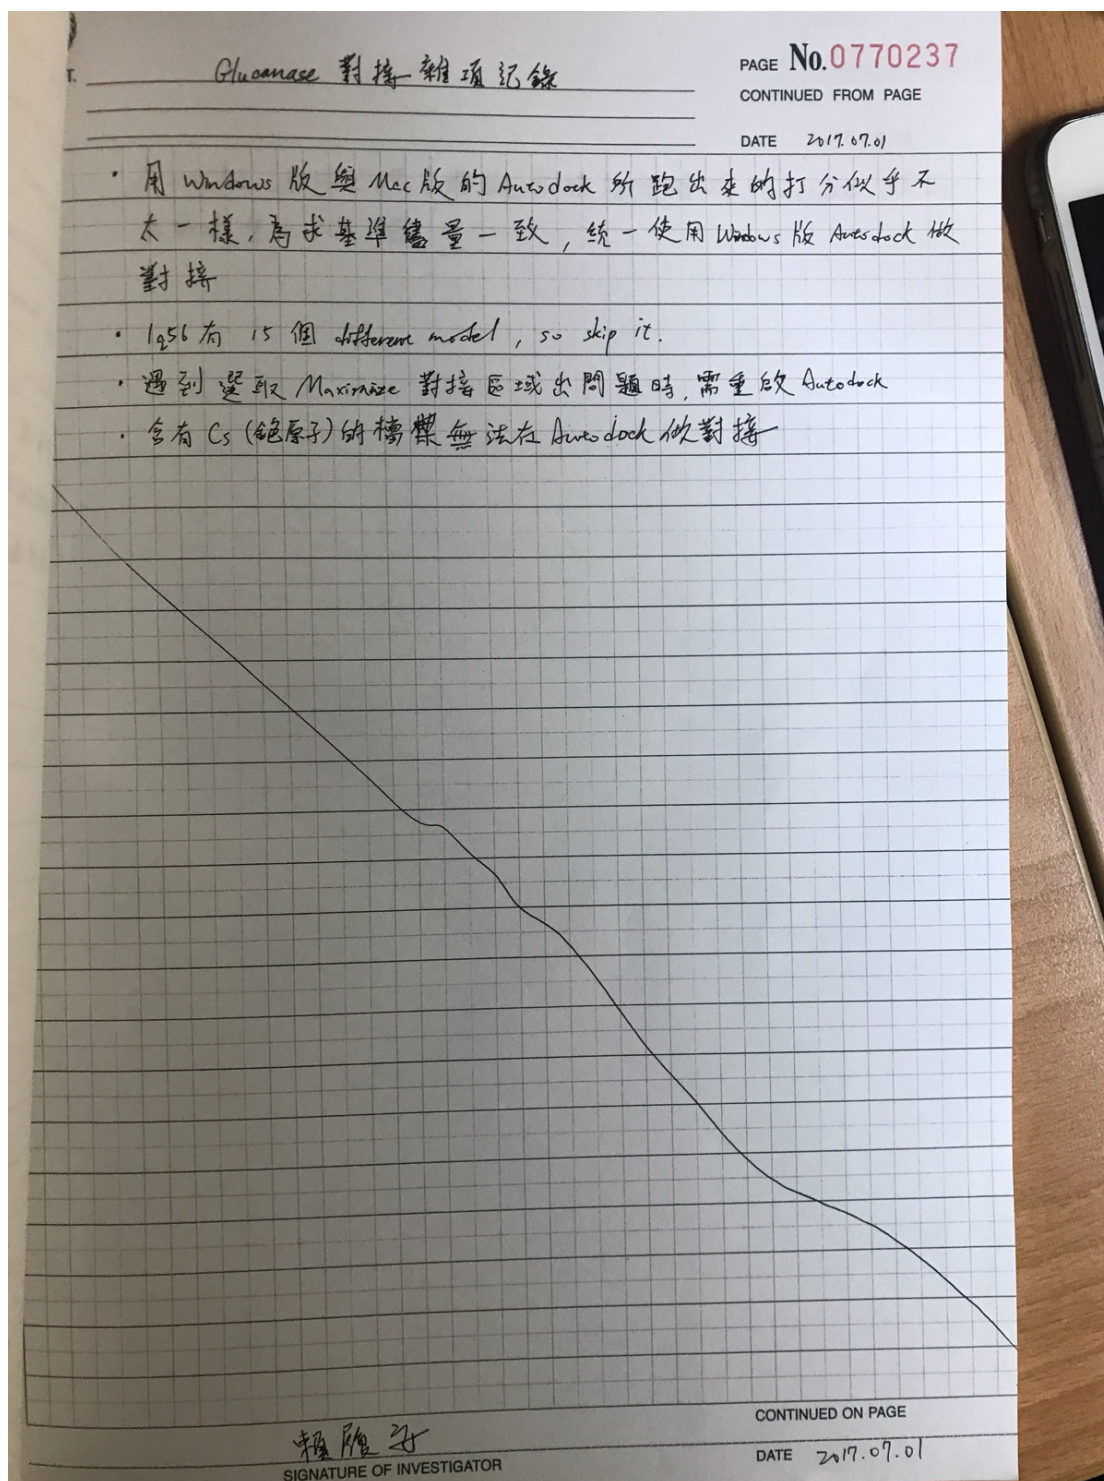 T.
Glucanase 對接雜項記錄
PAGE No.0770237
CONTINUED FROM PAGE
DATE 2017.07.01
· 用 Windows 版與 Mac 版的 Autodock 所跑出來的打分似乎不
太一樣, 為求基準儘量一致, 統一使用 Windows 版 Autodock 做
對接
· 1q56 有 15 個 different model, so skip it.
· 遇到選取 Maximize 對接區域出問題時, 需重啟 Autodock
· 含有 Cs (銫原子) 的檔案無法在 Autodock 做對接
CONTINUED ON PAGE
賴
SIGNATURE OF INVESTIGATOR
DATE 2017.07.01